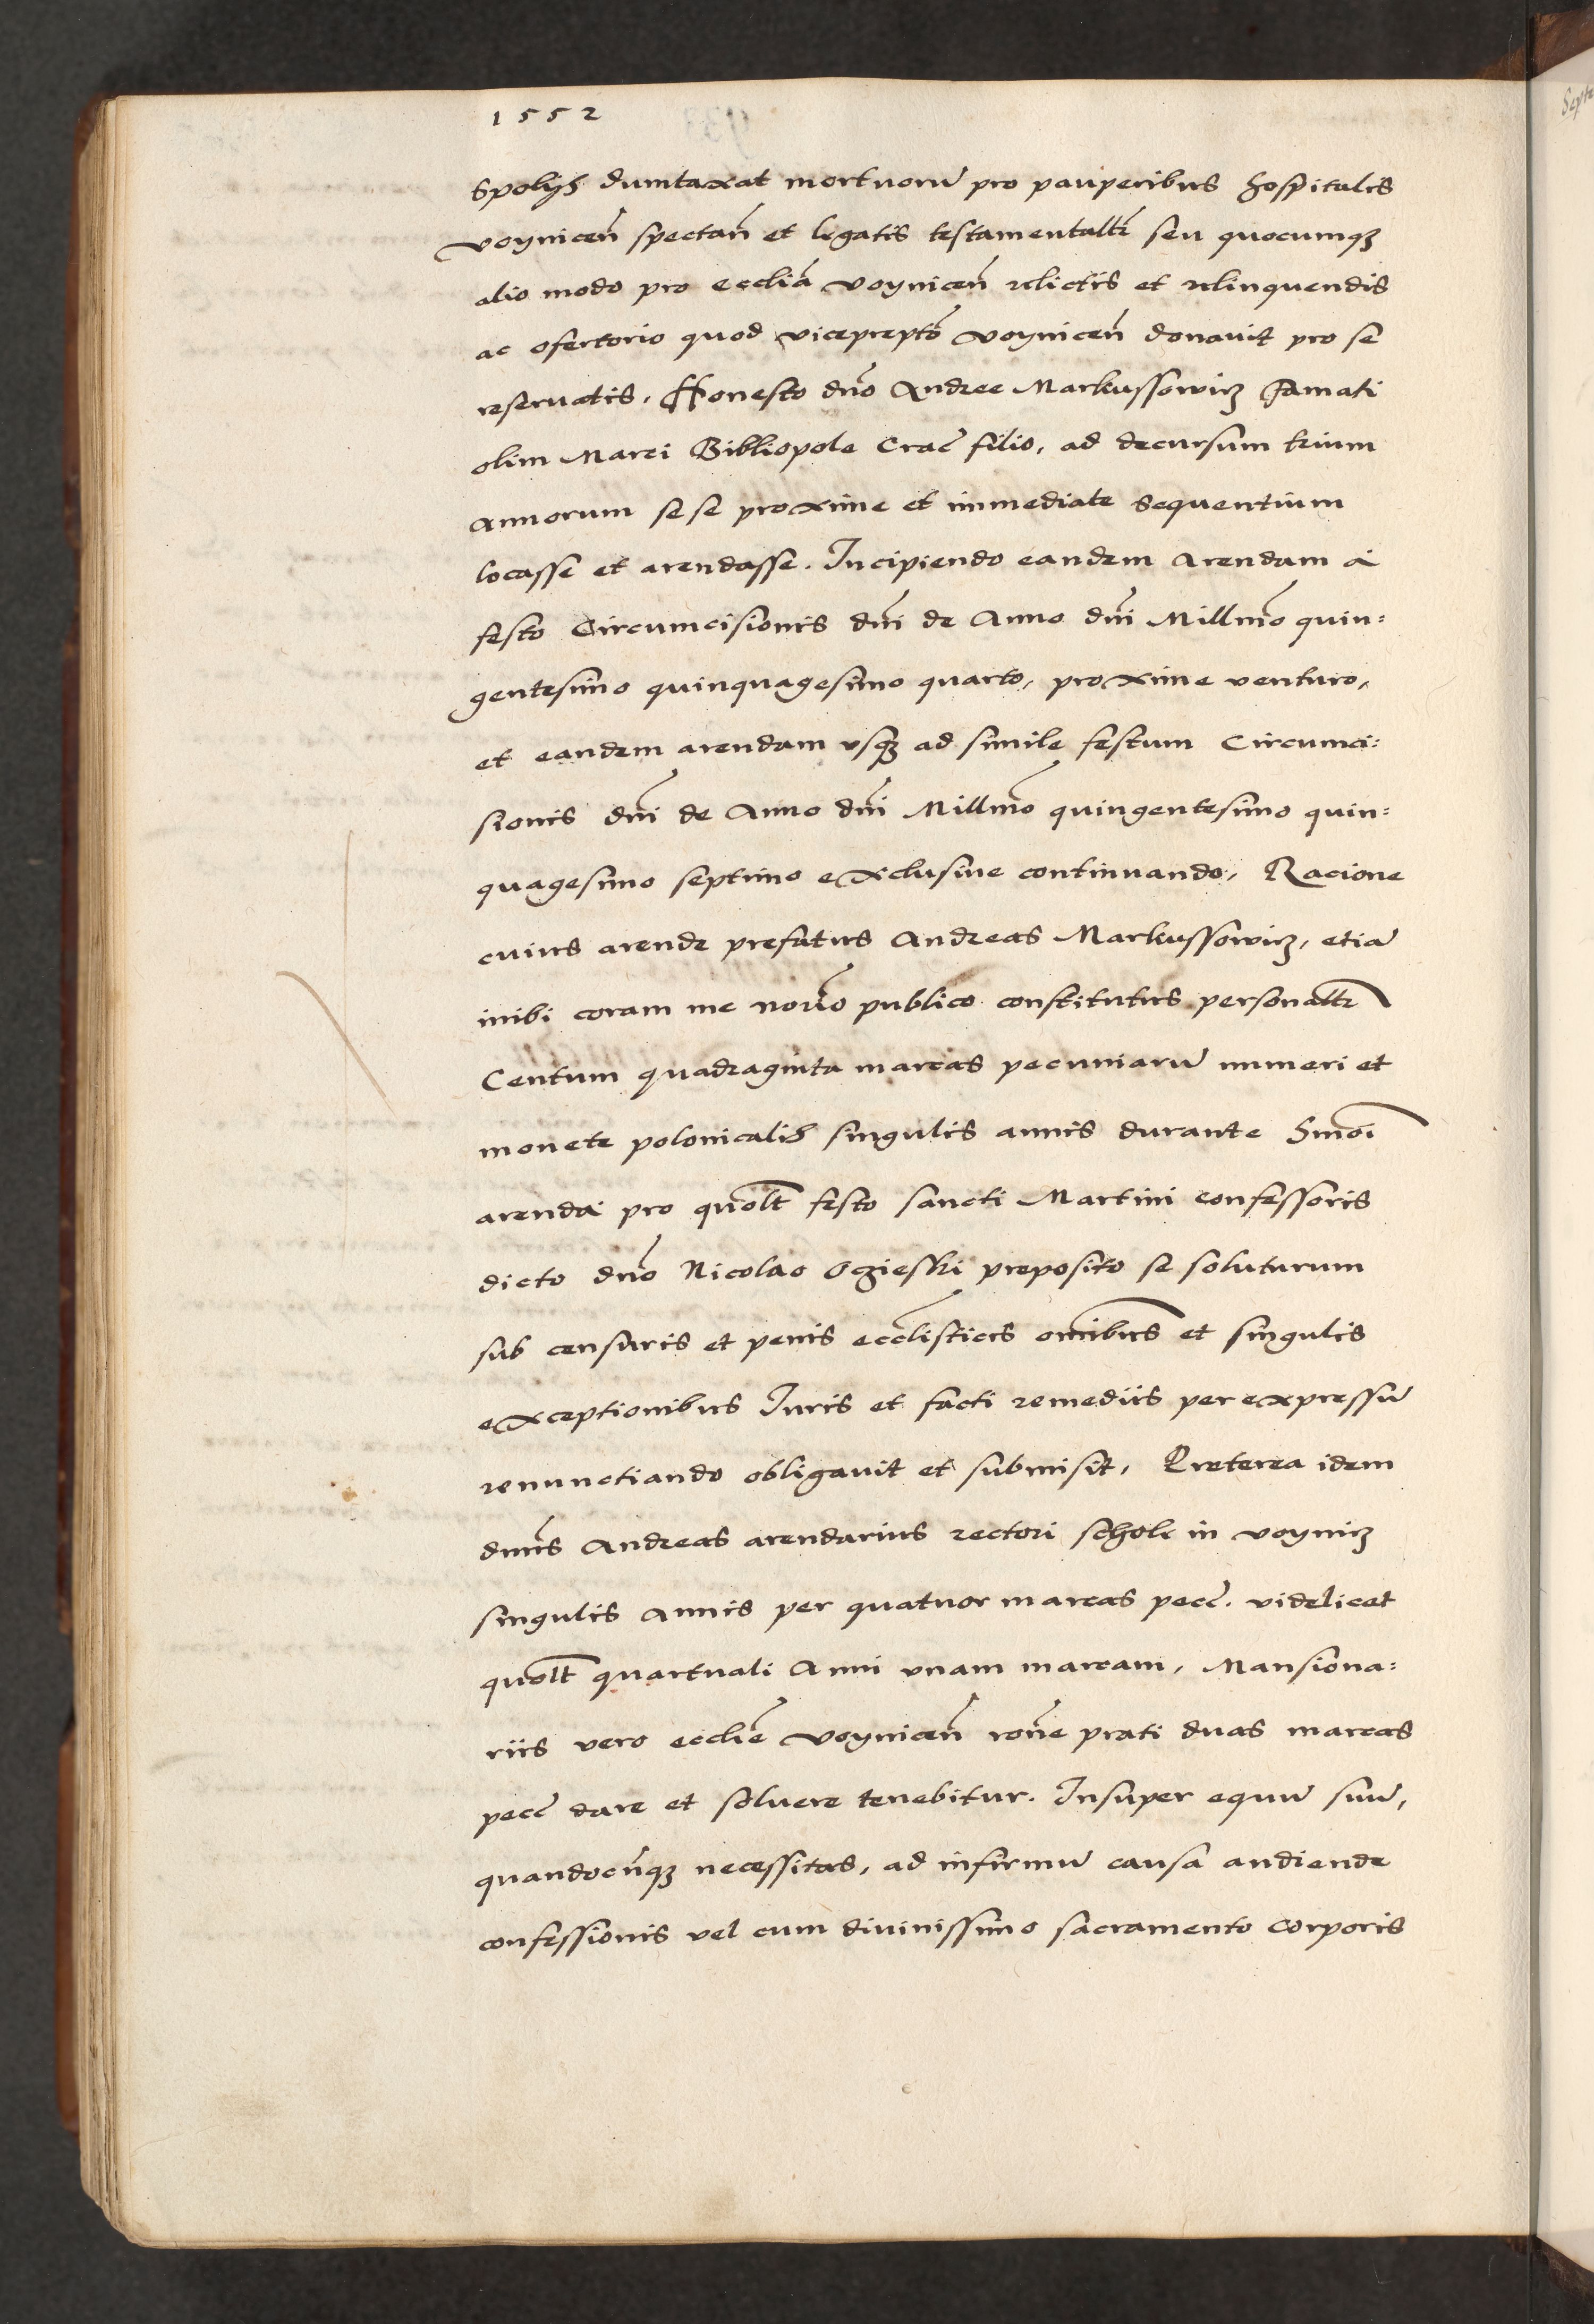 1552
spolijs dumtaxat mortuorū pro pauperibus hospitalis
voyniceñ spectañ et legatis testamentalr̃ seu quocumqȝ
alio modo pro eccliã voyniceñ relictis et relinquendis
ac ofertorio quod viceprepto᷉ voyniceñ donavit pro se
reservatis, Honesto dño Andree Markussowicz famati
olim Marci Bibliopole Crac̃ filio, ad decursum trium
annorum sese proxime et immediate sequentium
locasse et arendasse. Incipiendo eandem arendam à
festo Circumcisionis dñi de Anno dñi Millm̃o quin=
gentesimo quinquagesimo quarto, proxime venturo,
et eandem arendam usqȝ ad simile festum Circumci=
sionis dñi de Anno dñi Millm̃o quingentesimo quin=
quagesimo septimo exclusive continuando, Racione
cuius arende prefatus Andreas Markussowicz, etiã
inibi coram me notr̃io publico constitutus personalr̃
Centum quadraginta marcas pecuniarū numeri et
monete polonicalis singulis annis durante hm̃oi
arenda pro quolt̃ festo sancti Martini confessoris
dicto dño Nicolao Ogieski preposito se soluturum
sub censuris et penis ecclīsticis om̃ibus et singulis
exceptionibus Iuris et facti remediis per expressū
renunctiando obligavit et submisit, Preterea idem
dm̃s Andreas arendarius rectori schole in voynicz
singulis Annis per quatuor marcas pecc̃. videlicet
quolt̃ quartuali Anni unam marcam, Mansiona=
riis vero ecclīe voyniceñ rone᷉ prati duas marcas
pecc̃ dare et solvere tenebitur. Insuper equū suū,
quandocūqȝ necessitas, ad infirmū causa audiende
confessionis vel cum divinissimo sacramento corporis